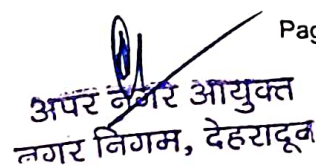 Pag
अपर नगर आयुक्त
नगर निगम, देहरादून